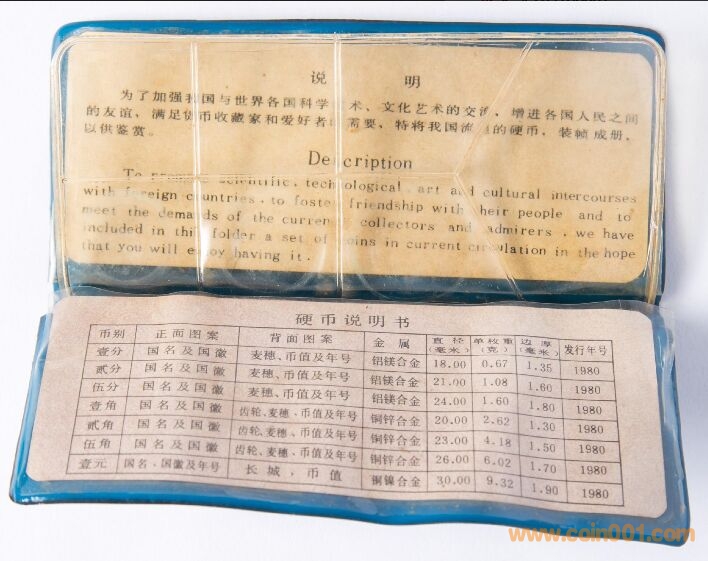 说 明
为了加强我国与世界各国科学技术、文化艺术的交流，增进各国人民之间
的友谊，满足货币收藏家和爱好者的需要，特将我国流通的硬币，装帧成册，
以供鉴赏。
Description
To promote scientific, technological, art and cultural intercourses
with foreign countries, to foster friendship with their people and to
meet the demands of the currency collectors and admirers, we have
included in this folder a set of coins in current circulation in the hope
that you will enjoy having it.
硬币说明书
币别 正面图案 背面图案 金属 直径(毫米) 单枚重(克) 边厚(毫米) 发行年号
壹分 国名及国徽 麦穗、币值及年号 铝镁合金 18.00 0.67 1.35 1980
贰分 国名及国徽 麦穗、币值及年号 铝镁合金 21.00 1.08 1.60 1980
伍分 国名及国徽 麦穗、币值及年号 铝镁合金 24.00 1.60 1.80 1980
壹角 国名及国徽 齿轮、麦穗、币值及年号 铜锌合金 20.00 2.62 1.30 1980
贰角 国名及国徽 齿轮、麦穗、币值及年号 铜锌合金 23.00 4.18 1.50 1980
伍角 国名及国徽 齿轮、麦穗、币值及年号 铜锌合金 26.00 6.02 1.70 1980
壹元 国名、国徽及年号 长城、币值 铜镍合金 30.00 9.32 1.90 1980
www.coin001.com